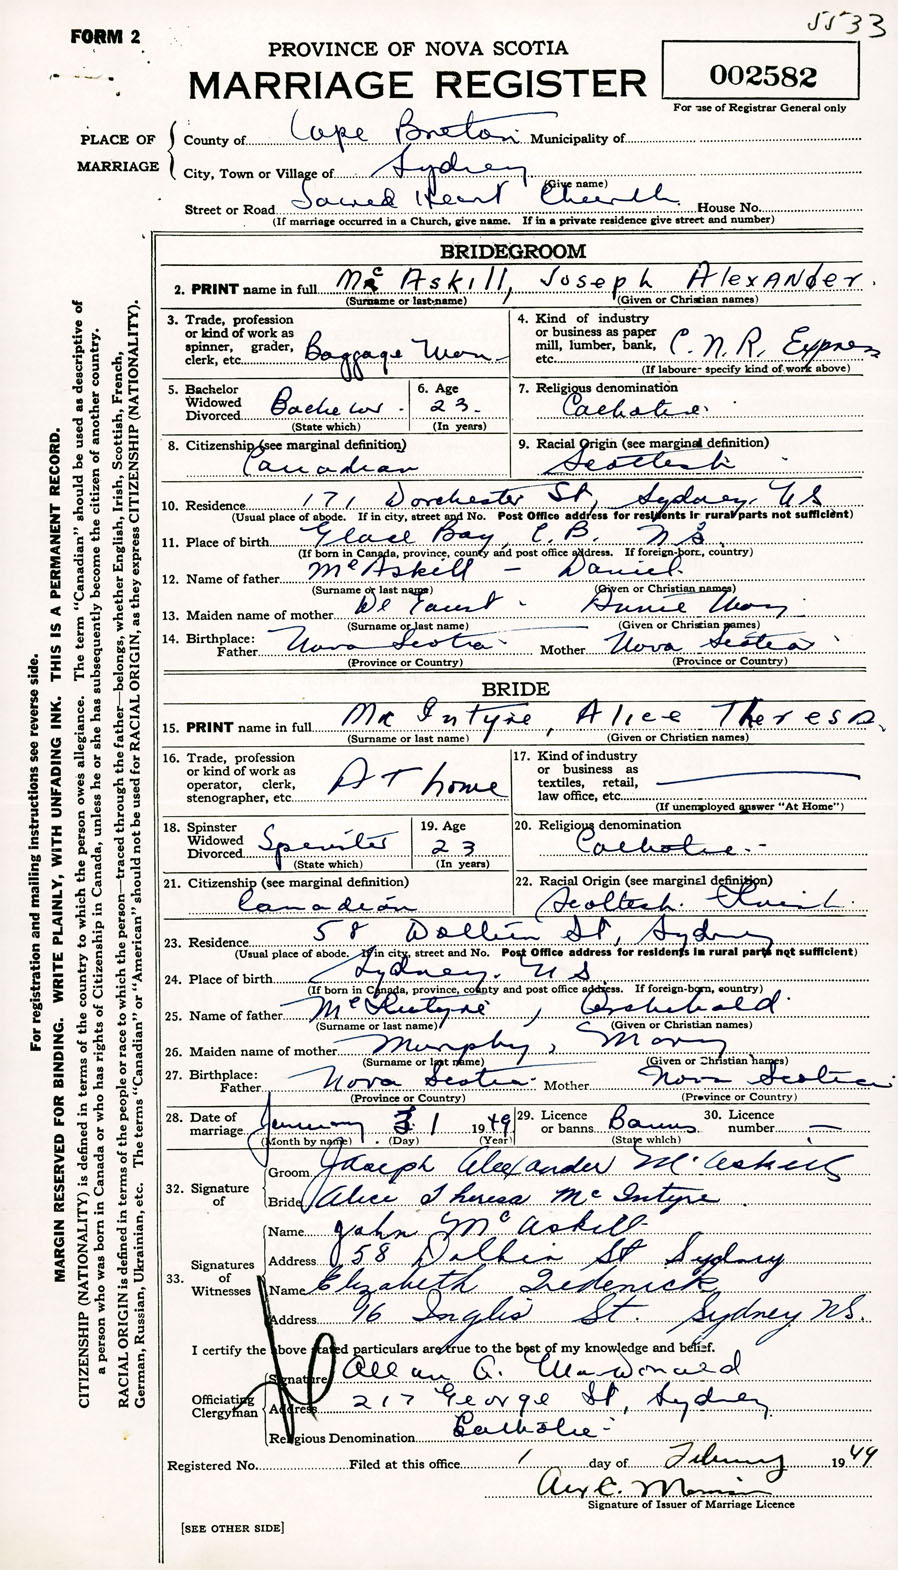 5533
FORM 2
PROVINCE OF NOVA SCOTIA
MARRIAGE REGISTER
002582
For use of Registrar General only
PLACE OF MARRIAGE
County of Cape Breton Municipality of
City, Town or Village of Sydney
(Give name)
Street or Road Sacred Heart Church House No.
(If marriage occurred in a Church, give name. If in a private residence give street and number)
BRIDEGROOM
2. PRINT name in full McAskill, Joseph Alexander.
(Surname or last name) (Given or Christian names)
3. Trade, profession or kind of work as spinner, grader, clerk, etc. Baggage Man
4. Kind of industry or business as paper mill, lumber, bank, etc. C.N.R. Express
(If labourer specify kind of work above)
5. Bachelor Widowed Divorced Bachelor.
(State which)
6. Age 23.
(In years)
7. Religious denomination Catholic.
8. Citizenship (see marginal definition) Canadian
9. Racial Origin (see marginal definition) Scottish
10. Residence 171 Dorchester St, Sydney, NS
(Usual place of abode. If in city, street and No. Post Office address for residents in rural parts not sufficient)
11. Place of birth Glace Bay, C.B. N.S.
(If born in Canada, province, county and post office address. If foreign-born, country)
12. Name of father McAskill - Daniel.
(Surname or last name) (Given or Christian names)
13. Maiden name of mother Annie Mary
(Surname or last name) (Given or Christian names)
14. Birthplace: Father Nova Scotia Mother Nova Scotia
(Province or Country) (Province or Country)
BRIDE
15. PRINT name in full McIntyre, Alice Theresa.
(Surname or last name) (Given or Christian names)
16. Trade, profession or kind of work as operator, clerk, stenographer, etc. At home
17. Kind of industry or business as textiles, retail, law office, etc. —
(If unemployed answer "At Home")
18. Spinster Widowed Divorced Spinster
(State which)
19. Age 23
(In years)
20. Religious denomination Catholic.-
21. Citizenship (see marginal definition) Canadian
22. Racial Origin (see marginal definition) Scottish.
23. Residence 58 St, Sydney
(Usual place of abode. If in city, street and No. Post Office address for residents in rural parts not sufficient)
24. Place of birth Sydney. N.S.
(If born in Canada, province, county and post office address. If foreign-born, country)
25. Name of father McIntyre, Archibald.
(Surname or last name) (Given or Christian names)
26. Maiden name of mother Murphy, Mary
(Surname or last name) (Given or Christian names)
27. Birthplace: Father Nova Scotia. Mother Nova Scotia
(Province or Country) (Province or Country)
28. Date of marriage January 31 1949
(Month by name) (Day) (Year)
29. Licence or banns Banns
(State which)
30. Licence number —
32. Signature of
Groom Joseph Alexander McAskill
Bride Alice Theresa McIntyre
33. Signatures of Witnesses
Name John McAskill
Address 58 St Sydney
Name Elizabeth
Address 96 Inglis St. Sydney N.S.
I certify the above stated particulars are true to the best of my knowledge and belief.
Officiating Clergyman
Signature Allan G. MacDonald
Address 217 George St, Sydney.
Religious Denomination Catholic-
Registered No. Filed at this office 1 day of February 1949
Signature of Issuer of Marriage Licence
[SEE OTHER SIDE]
For registration and mailing instructions see reverse side.
MARGIN RESERVED FOR BINDING. WRITE PLAINLY, WITH UNFADING INK. THIS IS A PERMANENT RECORD.
CITIZENSHIP (NATIONALITY) is defined in terms of the country to which the person owes allegiance. The term "Canadian" should be used as descriptive of
a person who was born in Canada or who has rights of Citizenship in Canada, unless he or she has subsequently become the citizen of another country.
RACIAL ORIGIN is defined in terms of the people or race to which the person—traced through the father—belongs, whether English, Irish, Scottish, French,
German, Russian, Ukrainian, etc. The terms "Canadian" or "American" should not be used for RACIAL ORIGIN, as they express CITIZENSHIP (NATIONALITY).